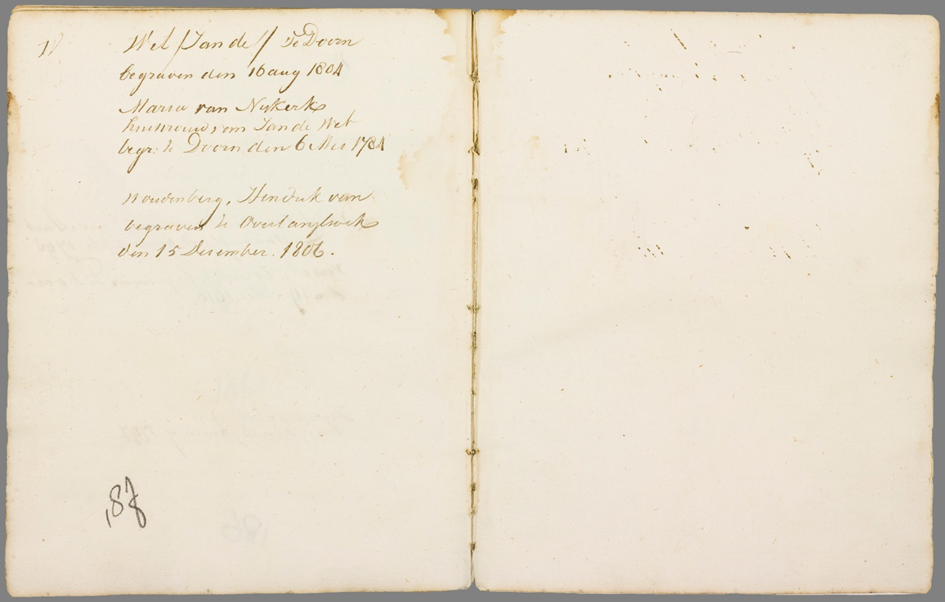 Wet /Jan de/ Te Doorn
begraven den 16 aug 1804
Maria van Nykerk
huisvrouw van Jan de Wet
begr: te Doorn den 6 Mei 1784
Woudenberg, Hendrik van
begraven te Overlangbroek
den 15 Desember. 1806.